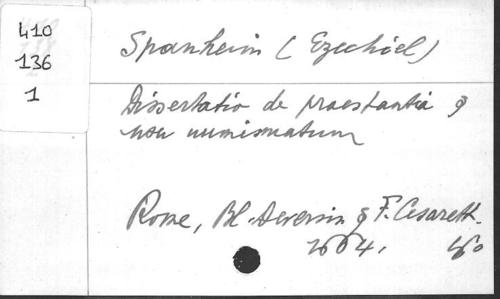 410
136
1
Spanheim (Ezechiel)
Dissertatio de praestantia &
usu numismatum
Rome, Bl. Deversin & F. Cesarett.
1664. 4o